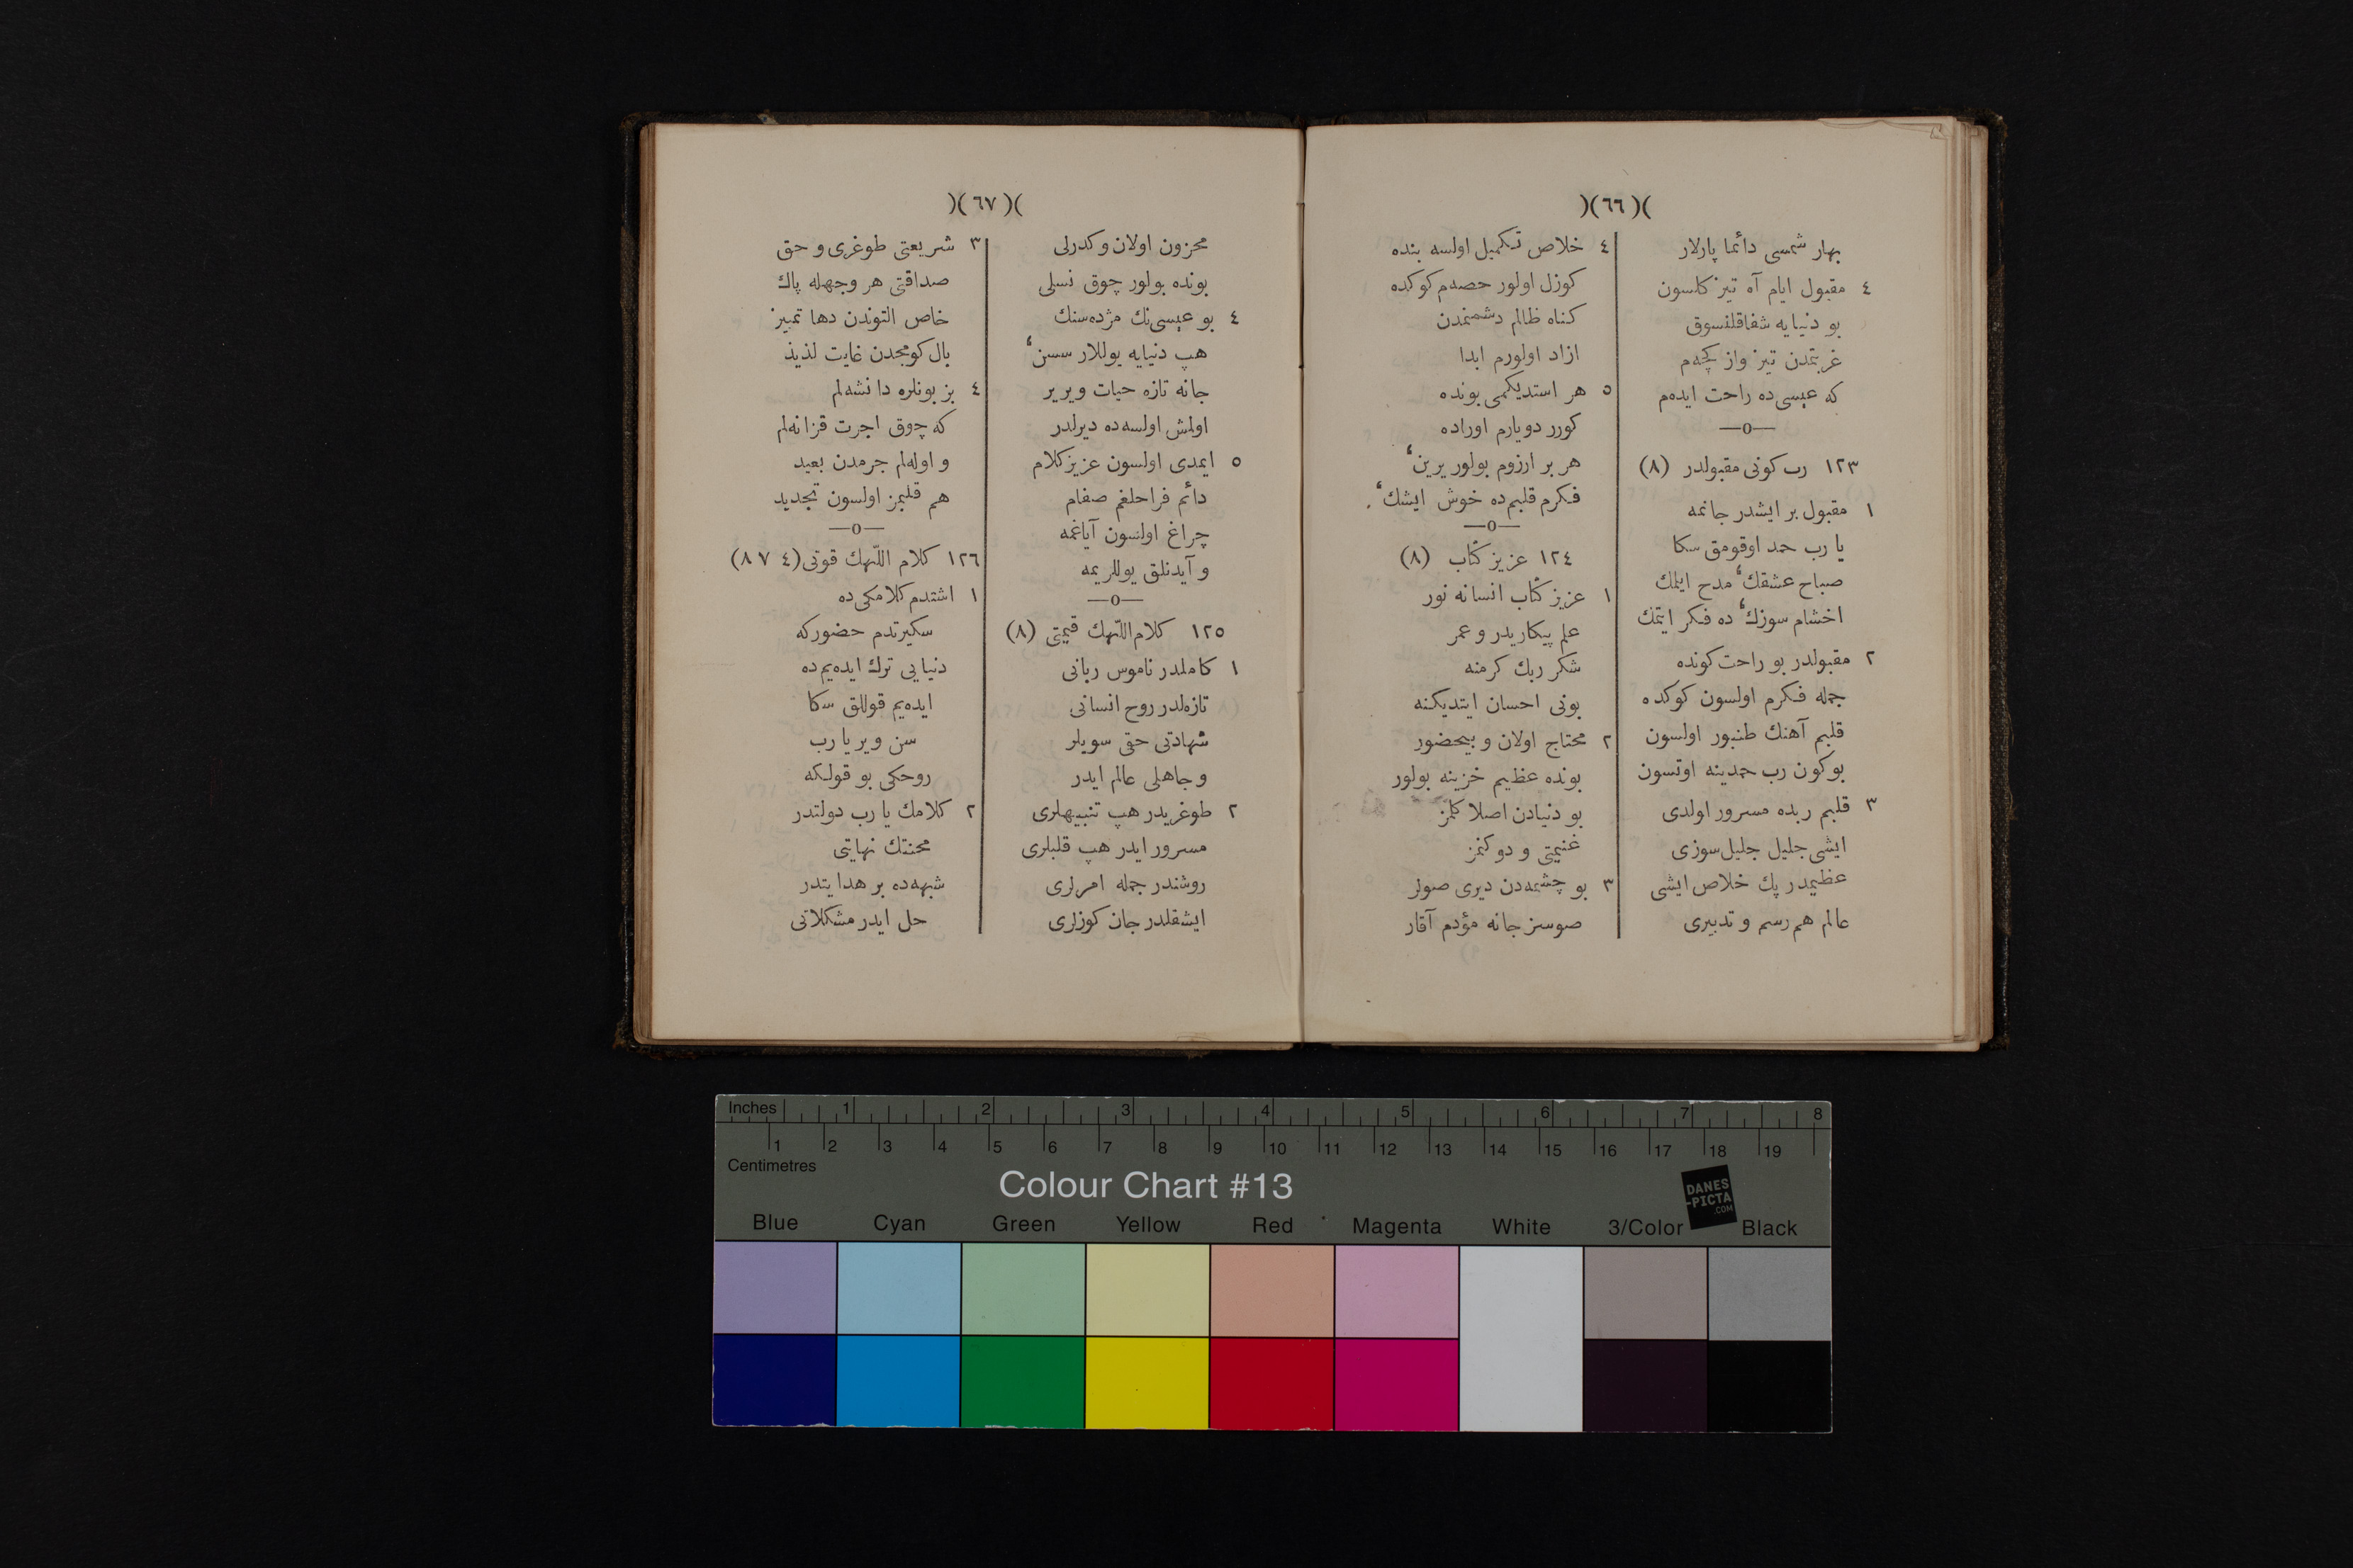 )(٦٦)(
بهار شمسی دائما پارلار
٤ مقبول ایام آه تیز کلسون
بو دنیایه شفاقلنسوق
غربتمدن تیز واز کچه‌م
که عیسی‌ده راحت ایده‌م
—o—
١٢٣ رب کونی مقبولدر (٨)
١ مقبول بر ایشدر جانمه
یا رب حمد اوقومق سکا
صباح عشقك، مدح ایلمك
اخشام سوزك، ده فکر ایتمك
٢ مقبولدر بو راحت کونده
جمله فکرم اولسون کوکده
قلبم آهنك طنبور اولسون
بوکون رب حمدینه اوتسون
٣ قلبم ربده مسرور اولدی
ایشی جلیل جلیل سوزی
عظیمدر پك خلاص ایشی
عالم هم رسم و تدبیری
٤ خلاص تکمیل اولسه بنده
کوزل اولور حصه‌م کوکده
کناه ظالم دشمنمدن
ازاد اولورم ابدا
٥ هر استدیکمی بونده
کورر دویارم اوراده
هر بر ارزوم بولور یرین،
فکرم قلبم‌ده خوش ایشك،
—o—
١٢٤ عزیز کتاب (٨)
١ عزیز کتاب انسانه نور
علم پیکاریدر و عمر
شکر ربك کرمنه
بونی احسان ایتدیکنه
٢ محتاج اولان و بیحضور
بونده عظیم خزینه بولور
بو دنیادن اصلا کلمز
غنیمتی و دوکنمز
٣ بو چشمه‌دن دیری صولر
صوسز جانه مؤدم آقار
)(٦٧)(
محزون اولان و کدرلی
بونده بولور چوق نسلی
٤ بو عیسی‌نك مژده‌سنك
هپ دنیایه یوللار سسن،
جانه تازه حیات ویریر
اولمش اولسه‌ده دیرلدر
٥ ایمدی اولسون عزیز کلام
دائم فراحلغم صفام
چراغ اولنسون آیاغمه
و آیدنلق یوللریمه
—o—
١٢٥ کلام اللّٰهك قیمتی (٨)
١ کاملدر ناموس ربانی
تازه‌لدر روح انسانی
شهادتی حقی سویلر
و جاهلی عالم ایدر
٢ طوغریدر هپ تنبیهلری
مسرور ایدر هپ قلبلری
روشندر جمله امرلری
ایشقلدر جان کوزلری
٣ شریعتی طوغری و حق
صداقتی هر وجهله پاك
خاص التوندن دها تمیز
بال کومجدن غایت لذیذ
٤ بز بونلره دا نشه‌لم
که چوق اجرت قزانه‌لم
و اوله‌لم جرمدن بعید
هم قلبمز اولسون تجدید
—o—
١٢٦ کلام اللّٰهك قوتی (٤ ٧ ٨)
١ اشتدم کلامکی‌ده
سکیرتدم حضورکه
دنیایی ترك ایده‌یم‌ده
ایده‌یم قوللق سکا
سن ویر یا رب
روحکی بو قولکه
٢ کلامك یا رب دولتدر
محنتك نهایتی
شبهه‌ده بر هدایتدر
حل ایدر مشکلاتی
Inches 1 2 3 4 5 6 7 8
1 2 3 4 5 6 7 8 9 10 11 12 13 14 15 16 17 18 19
Centimetres
Colour Chart #13
DANES
-PICTA
.COM
Blue Cyan Green Yellow Red Magenta White 3/Color Black